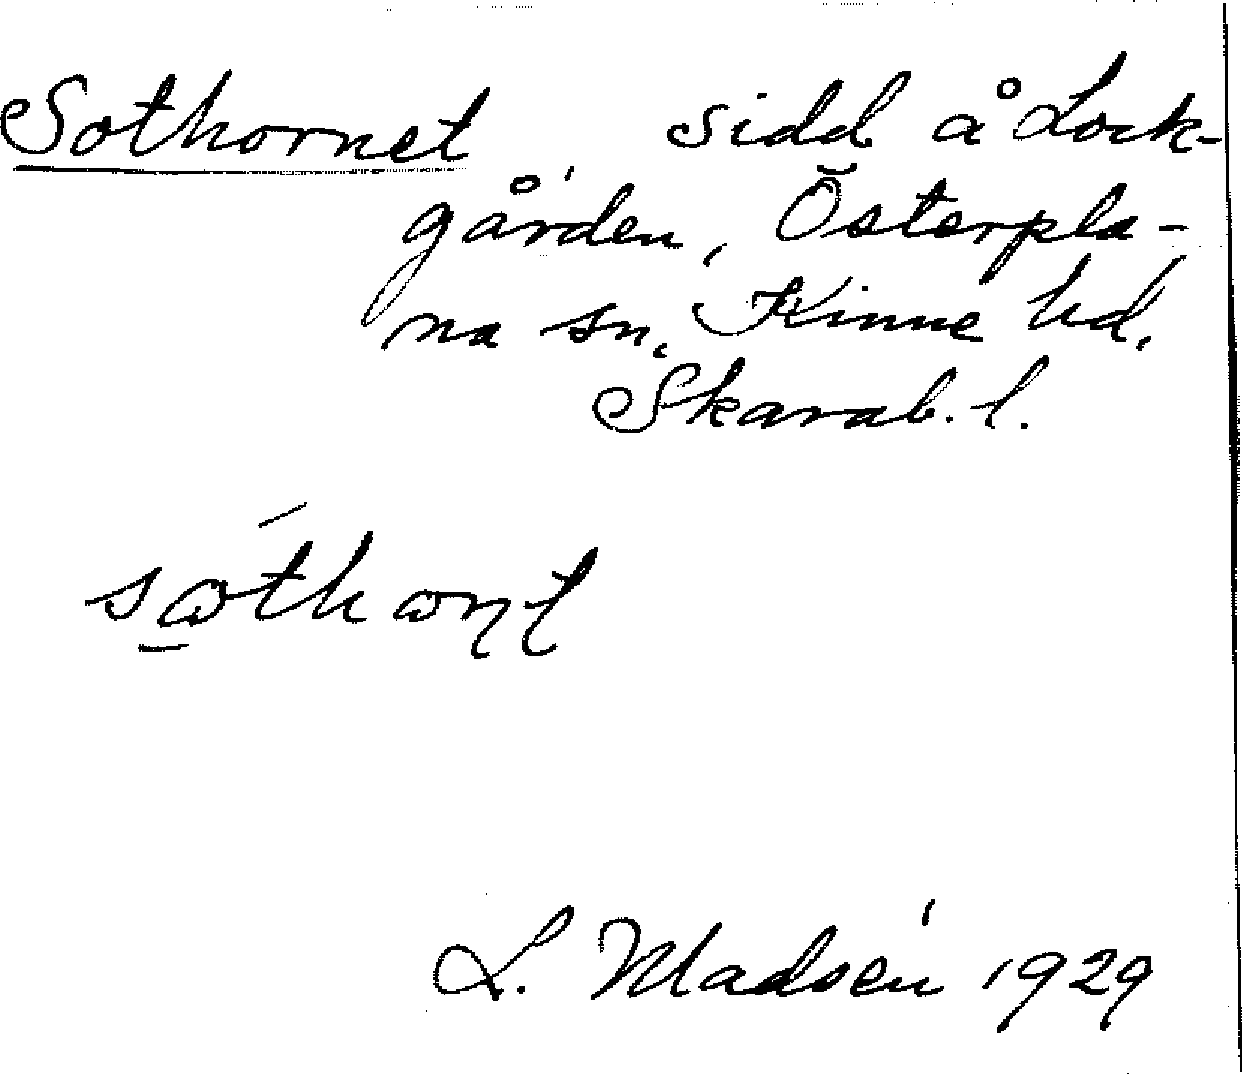 Sothornet, sidd å Lock-
gården, Österpla-
na sn, Kinne hd.
Skarab. l.
L. Madsén 1929